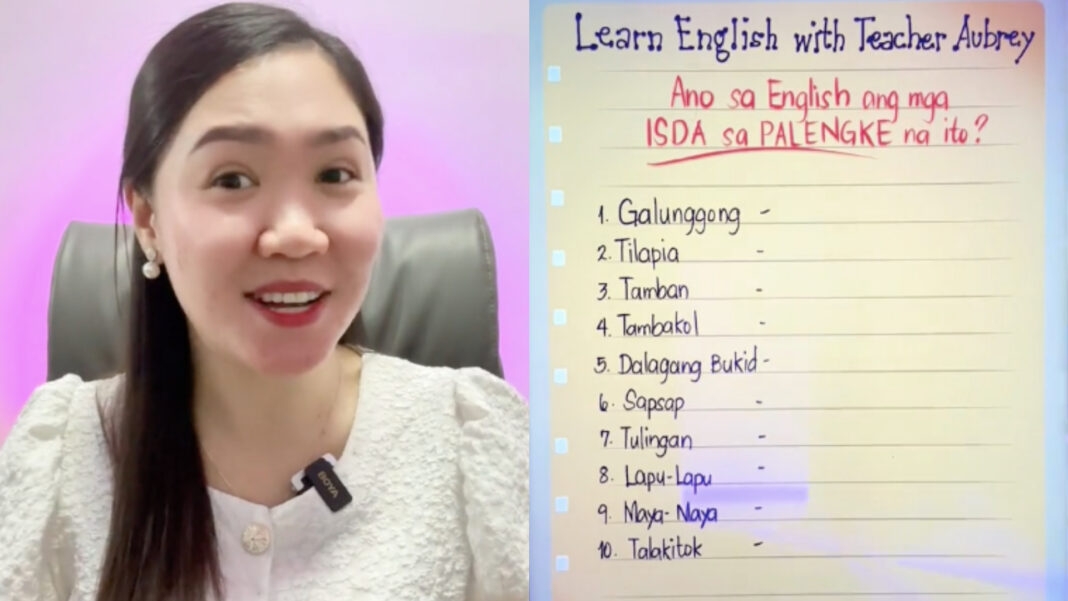 BOYA
Learn English with Teacher Aubrey
Ano sa English ang mga
ISDA sa PALENGKE na ito?
1. Galunggong -
2. Tilapia -
3. Tamban -
4. Tambakol -
5. Dalagang Bukid -
6. Sapsap -
7. Tulingan -
8. Lapu-Lapu -
9. Maya-Maya -
10. Talakitok -